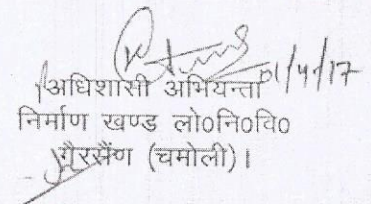 01/4/17
अधिशासी अभियन्ता
निर्माण खण्ड लो०नि०वि०
गैरसैंण (चमोली)।